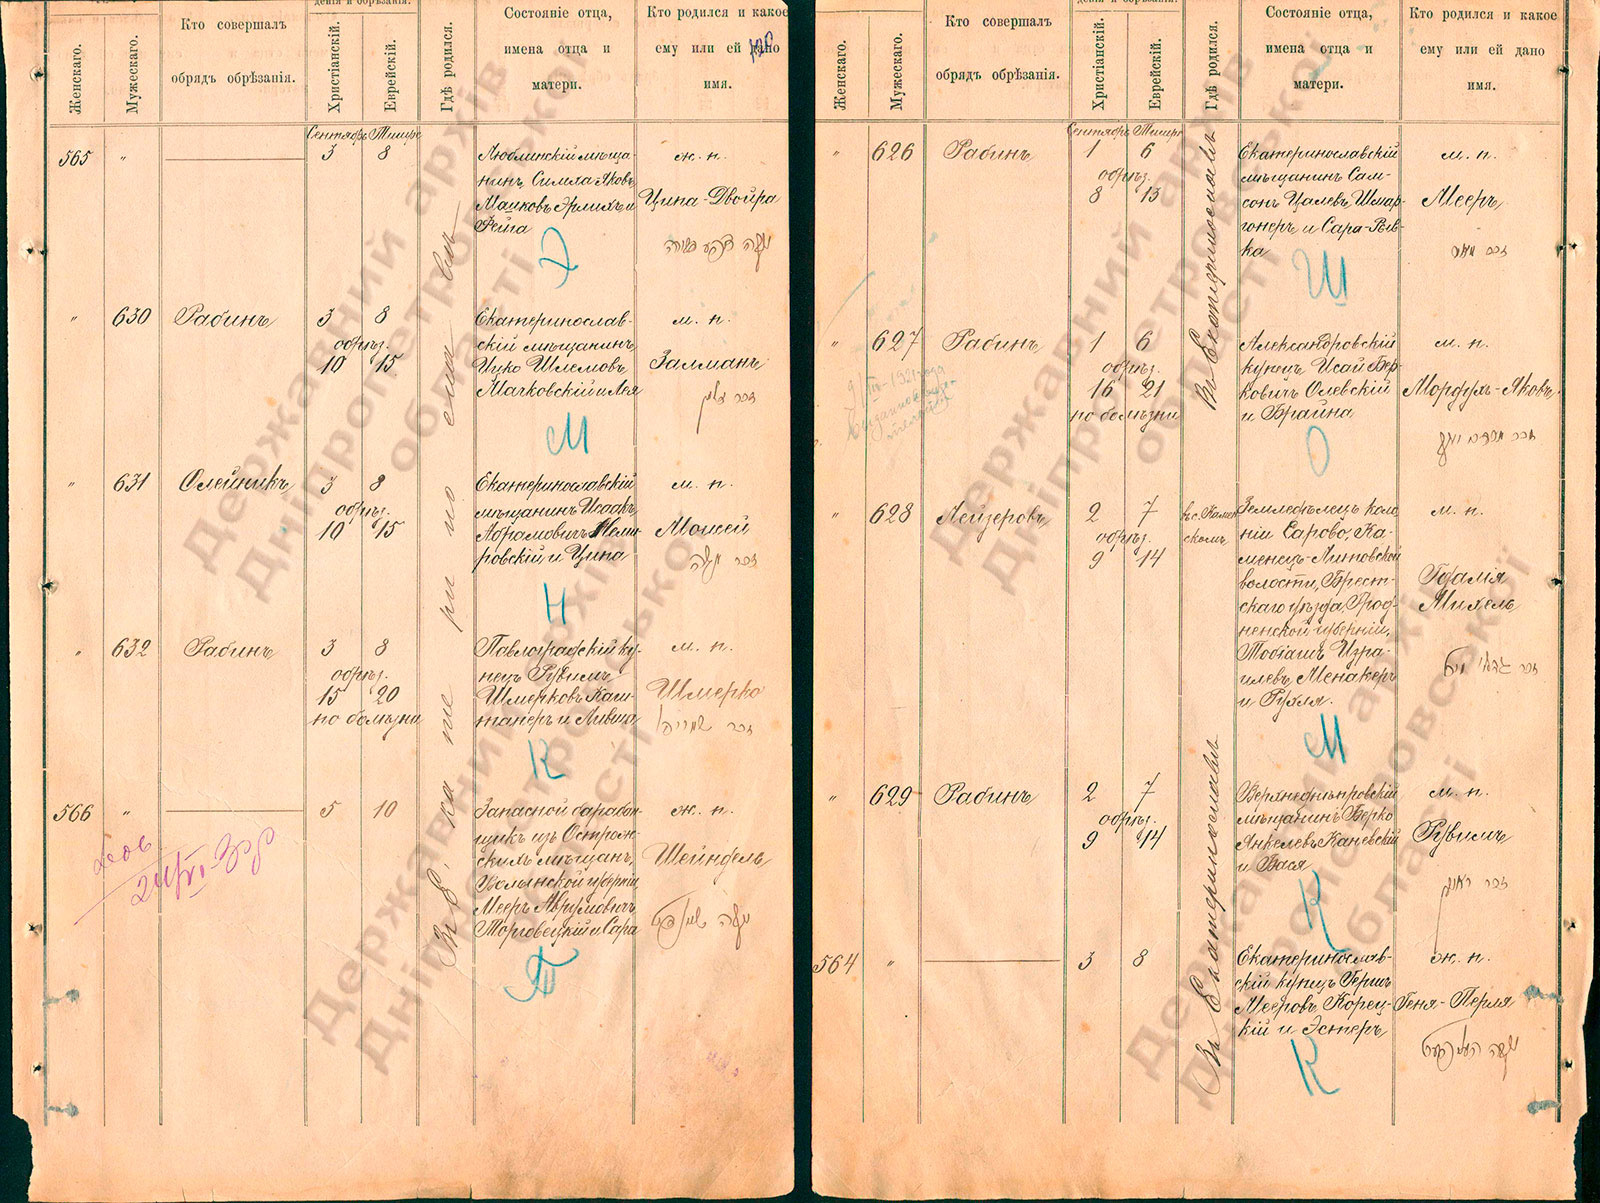 Женскаго.
Мужескаго.
Кто совершалъ
обрядъ обрѣзанія.
Христіанскій.
Еврейскій.
Гдѣ родился.
Состояніе отца,
имена отца и
матери.
Кто родился и какое
ему или ей дано
имя.
Сентябрь Тишри
565 " 3 8
Люблинскій мѣща-
нинъ, Симха-Яковъ
Машковъ Эрлихъ и
Фейга
ж. п.
Ципа-Двойра
Э
" 630 Рабинъ 3 8
обрѣз.
10 15
Екатеринослав-
скій мѣщанинъ
Ицко Шлемовъ
Мачковскій и Лея
м. п.
Залманъ
М
" 631 Олейникъ 3 8
обрѣз.
10 15
Екатеринославскій
мѣщанинъ Исаакъ
Абрамовичъ Неми-
ровскій и Ципа
м. п.
Мошей
Н
" 632 Рабинъ 3 8
обрѣз.
15 20
по болѣзни
Павлоградскій ку-
пецъ Рувимъ
Шмерковъ Каш-
танеръ и Ливша
м. п.
Шмерко
К
566 " 5 10
Запасной барабан-
щикъ изъ Острож-
скихъ мѣщанъ,
Волынской губерніи,
Мееръ Аврумовичъ
Торговецкій и Сара
ж. п.
Шейндель
Т
Въ Екатеринославѣ
Женскаго.
Мужескаго.
Кто совершалъ
обрядъ обрѣзанія.
Христіанскій.
Еврейскій.
Гдѣ родился.
Состояніе отца,
имена отца и
матери.
Кто родился и какое
ему или ей дано
имя.
Сентябрь Тишри
" 626 Рабинъ 1 6
обрѣз.
8 13
Екатеринославскій
мѣщанинъ Сам-
сонъ Цалевъ Шмар-
гонеръ и Сара-Рыв-
ка
м. п.
Мееръ
Ш
" 627 Рабинъ 1 6
обрѣз.
16 21
по болѣзни
Александровскій
купецъ Исай Бер-
ковичъ Олевскій
и Брайна
м. п.
Мордухъ-Яковъ
О
Въ Екатеринославѣ
" 628 Лейзеровъ 2 7
обрѣз.
9 14
въ с. Камен-
скомъ
Земледѣлецъ коло-
ніи Сарово, Ка-
менецъ-Литовской
волости, Брест-
скаго уѣзда, Грод-
ненской губерніи,
Тобіашъ Изра-
илевъ Менакеръ
и Рухля.
м. п.
Гдалія
Михель
М
" 629 Рабинъ 2 7
обрѣз.
9 14
Верхнеднѣпровскій
мѣщанинъ Берко
Янкелевъ Каневскій
и Вася
м. п.
Рувимъ
К
564 " 3 8
Екатеринослав-
скій купецъ Герш
Мееровъ Корец-
кій и Эстеръ
ж. п.
Геня-Перля
К
Въ Екатеринославѣ
Державний архів
Дніпропетровської
області